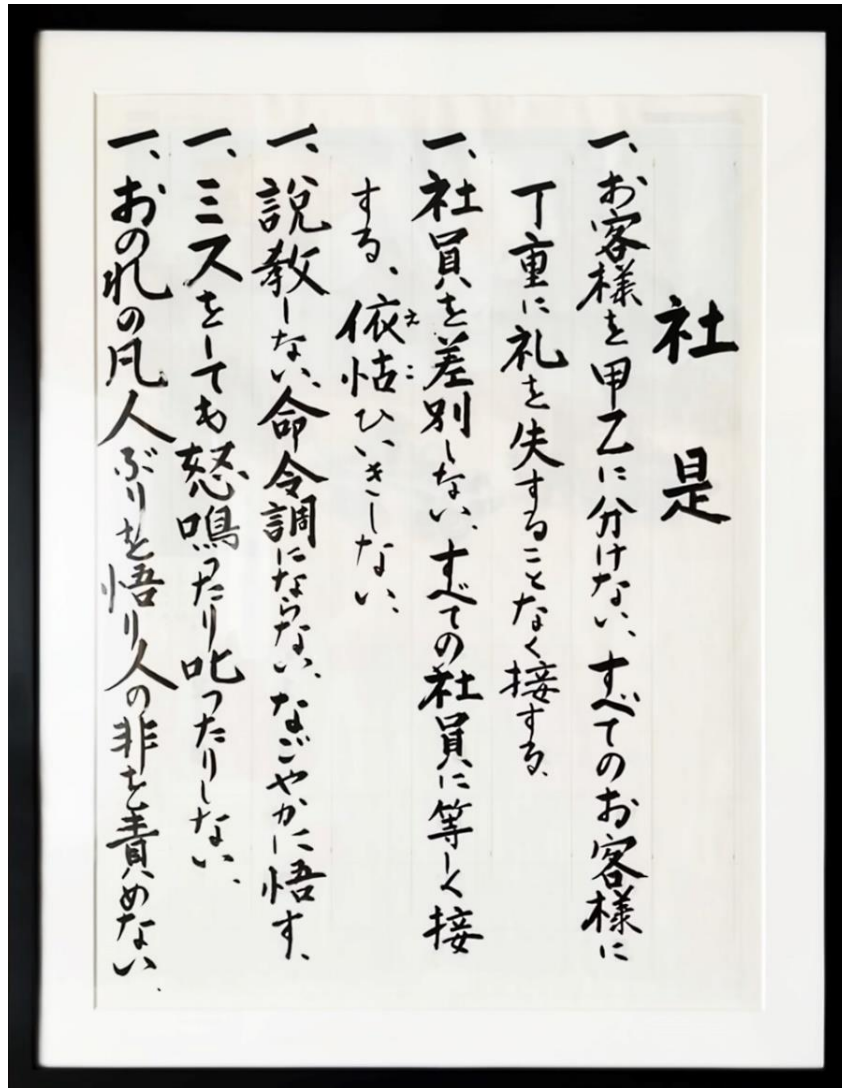 社是
一、お客様を甲乙に分けない、すべてのお客様に
丁重に礼を失することなく接する、
一、社員を差別しない、すべての社員に等しく接
する、依怙ひいきしない、
えこ
一、説教しない、命令調にならない、なごやかに悟す、
一、ミスをしても怒鳴ったり叱ったりしない、
一、おのれの凡人ぶりを悟り人の非を責めない、